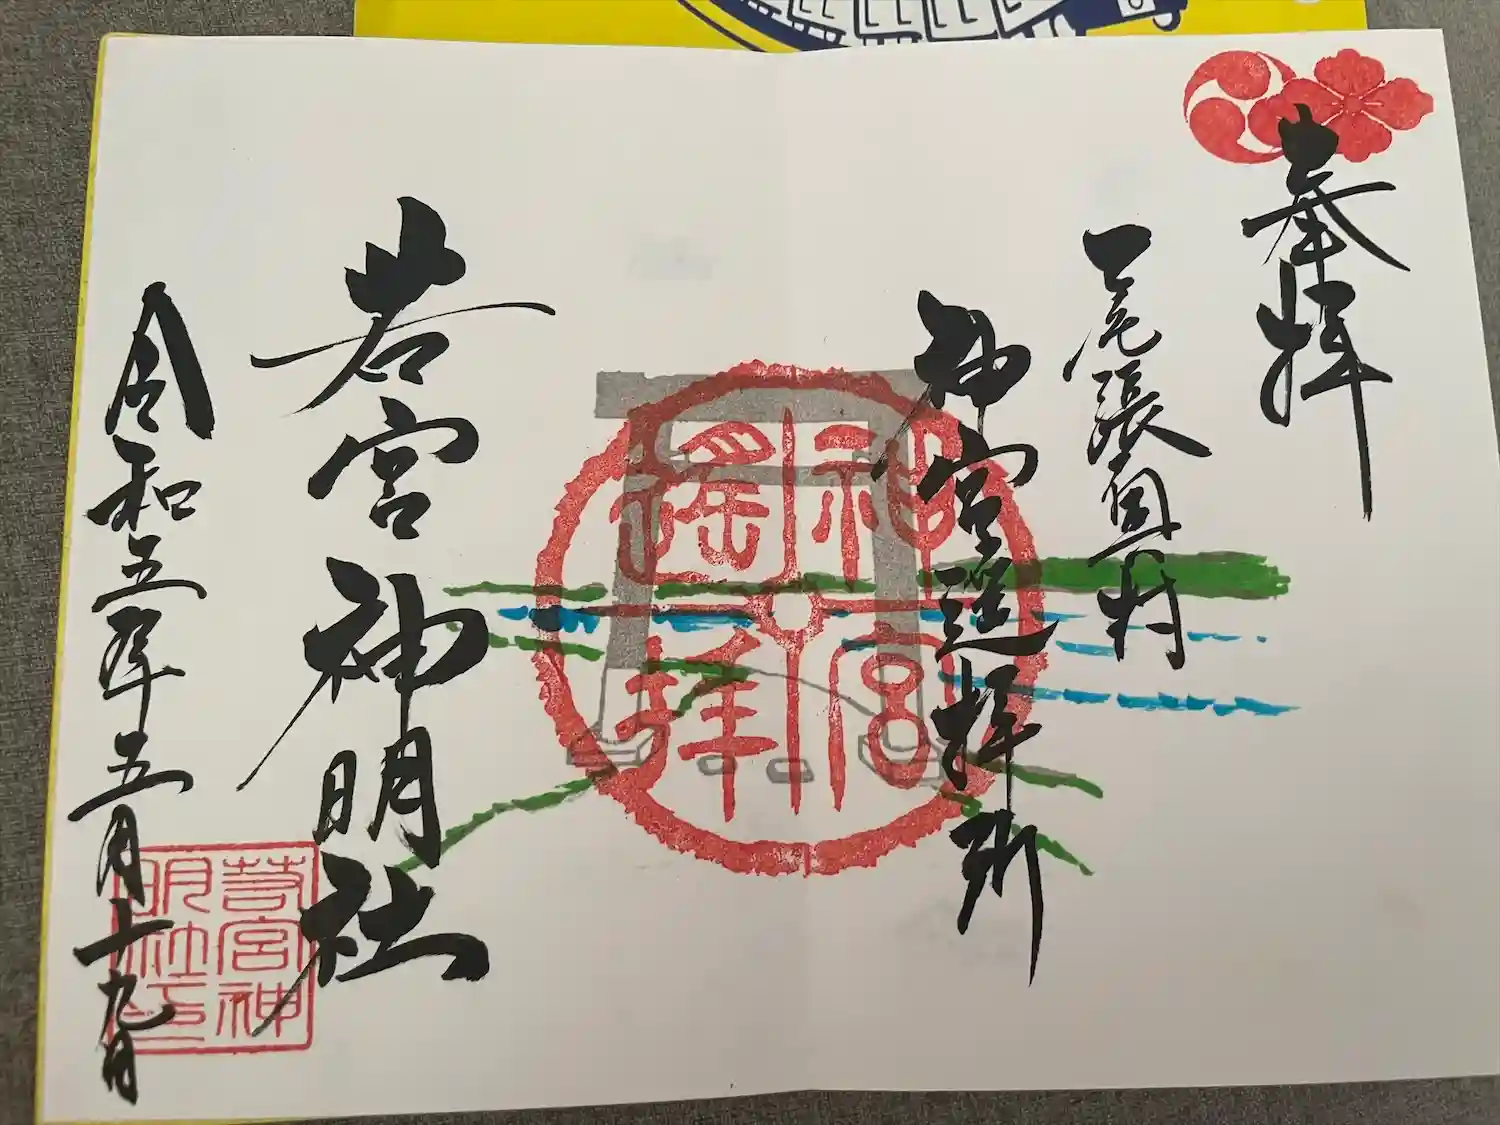 奉拝
尾張
神宮遥拝所
神宮
遥拝
若宮神明社
若宮神
明社印
令和五年五月十九日